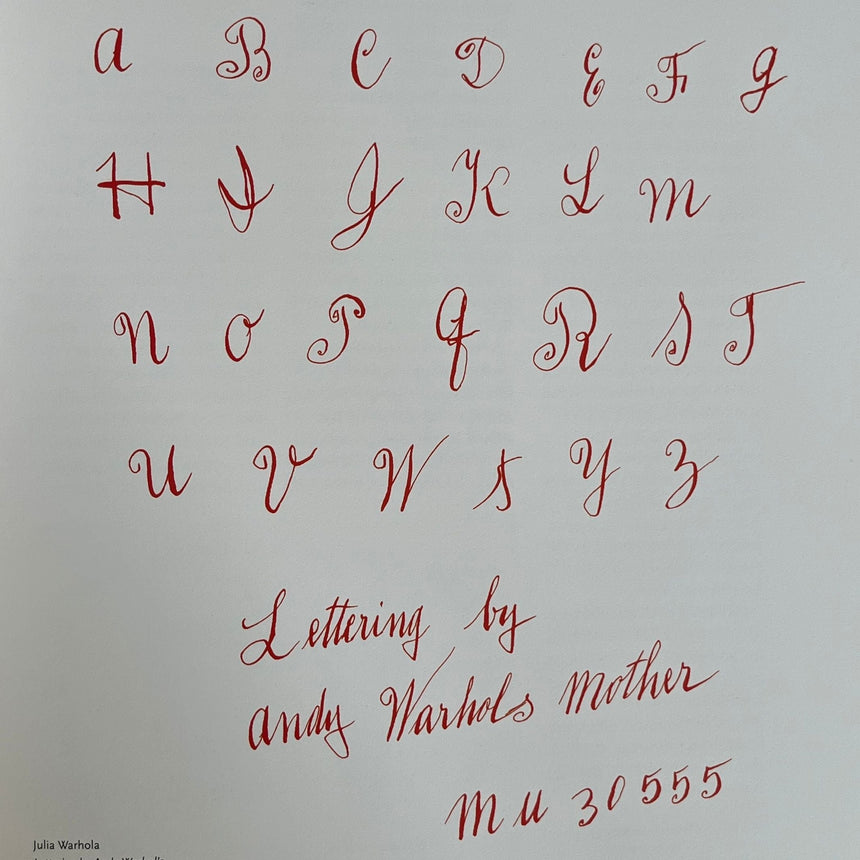 a B C D E F g
H I J K L m
N O P Q R S T
U V W X Y Z
Lettering by
andy Warhols Mother
MU 30555
Julia Warhola